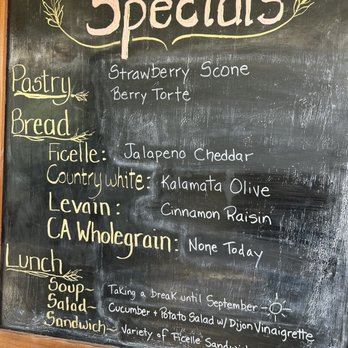 Specials
Pastry Strawberry Scone
Berry Torte
Bread
Ficelle: Jalapeno Cheddar
Country white: Kalamata Olive
Levain: Cinnamon Raisin
CA Wholegrain: None Today
Lunch
Soup~ Taking a break until September
Salad~ Cucumber + Potato Salad w/ Dijon Vinaigrette
Sandwich~ Variety of Ficelle Sandwi